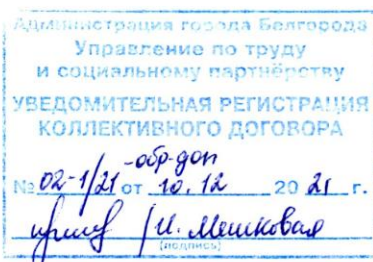 Администрация города Белгорода
Управление по труду
и социальному партнёрству
УВЕДОМИТЕЛЬНАЯ РЕГИСТРАЦИЯ
КОЛЛЕКТИВНОГО ДОГОВОРА
-обр-доп
№ 02-1/21 от 10.12 20 21 г.
/И. Мешковая
(подпись)